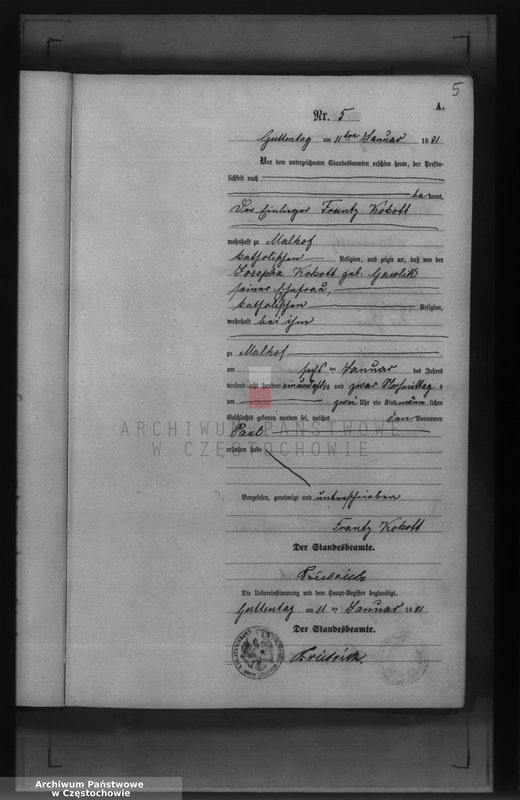 5
A.
Nr. 5
Guttentag am 11ten Januar 1881
Vor dem unterzeichneten Standesbeamten erschien heute, der Persön-
lichkeit nach
bekannt,
Der Einlieger Frantz Kokott
wohnhaft zu Malhof
katholischen Religion, und zeigte an, daß von der
Josepha Kokott geb. Gawlik
seiner Ehefrau,
katholischen Religion,
wohnhaft bei ihm
zu Malhof
am sechsten Januar des Jahres
tausend acht hundert einundachtzig und zwar Nachmittags
um zwei Uhr ein Kind männlichen
Geschlechts geboren worden sei, welches den Vornamen
Paul
erhalten habe
Vorgelesen, genehmigt und unterschrieben
Frantz Kokott
Der Standesbeamte.
Friedrich
Die Uebereinstimmung mit dem Haupt-Register beglaubigt.
Guttentag am 11ten Januar 1881
Der Standesbeamte.
Friedrich.
ARCHIWUM PAŃSTWOWE
W CZĘSTOCHOWIE
Archiwum Państwowe
w Częstochowie